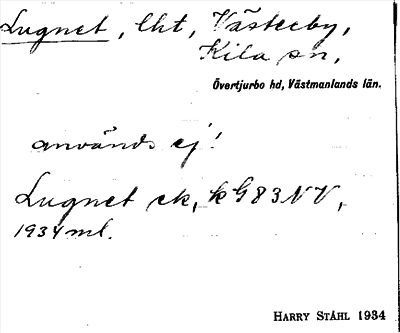 Lugnet, lht, Västerby,
Kila sn,
Övertjurbo hd, Västmanlands län.
används ej!
Lugnet ek, k G83NV,
1934 ml.
HARRY STÅHL 1934